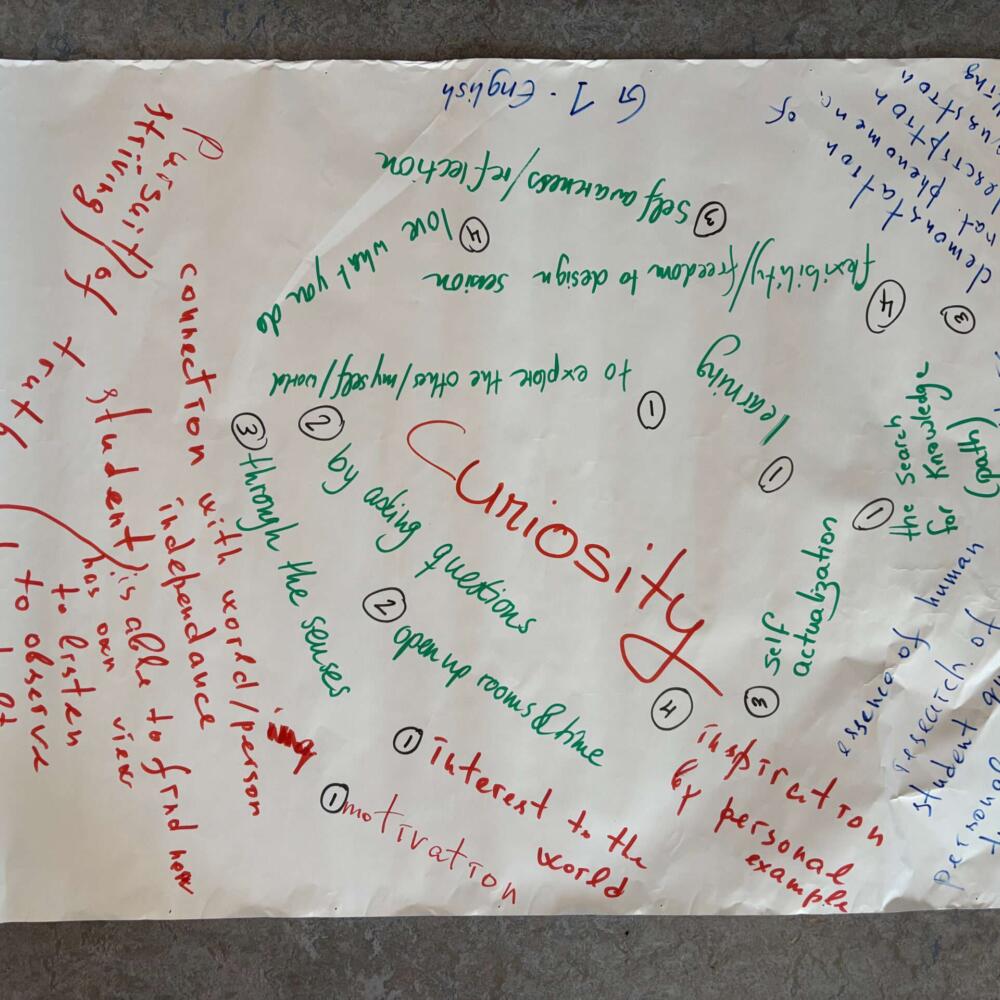 G1 - English
③ Self awarness/reflection
④ love what you do
④ flexibility/freedom to design session
① learning
① to explore the other/myself/world
Curiosity
② by asking questions
③ through the senses
② open up rooms & time
① interest to the
world
① motivation
④ inspiration
by personal
example
③ self
actualization
① the search
for Knowledge
(path)
③ demonstration
of
nat phenomena
description
question
essence of human
research of
student
personal
Pursuit/
striving/of
truth
connection with world/person
independance
student is able to find new
has own view
to listen
to observe